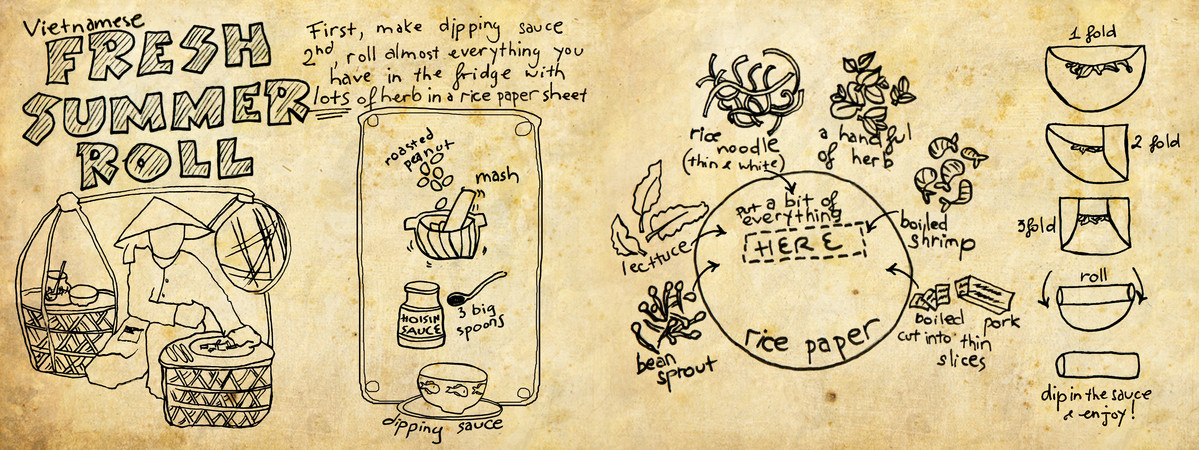 Vietnamese
FRESH
SUMMER
ROLL
First, make dipping sauce
2nd, roll almost everything you
have in the fridge with
lots of herb in a rice paper sheet
roasted
peanut
mash
HOISIN
SAUCE
3 big
spoons
dipping sauce
rice
noodle
(thin & white)
a handful
of herb
lecttuce
bean
sprout
put a bit of
everything
HERE
rice paper
boiled
shrimp
boiled pork
cut into thin
slices
1 fold
2 fold
3 fold
roll
dip in the sauce
& enjoy!